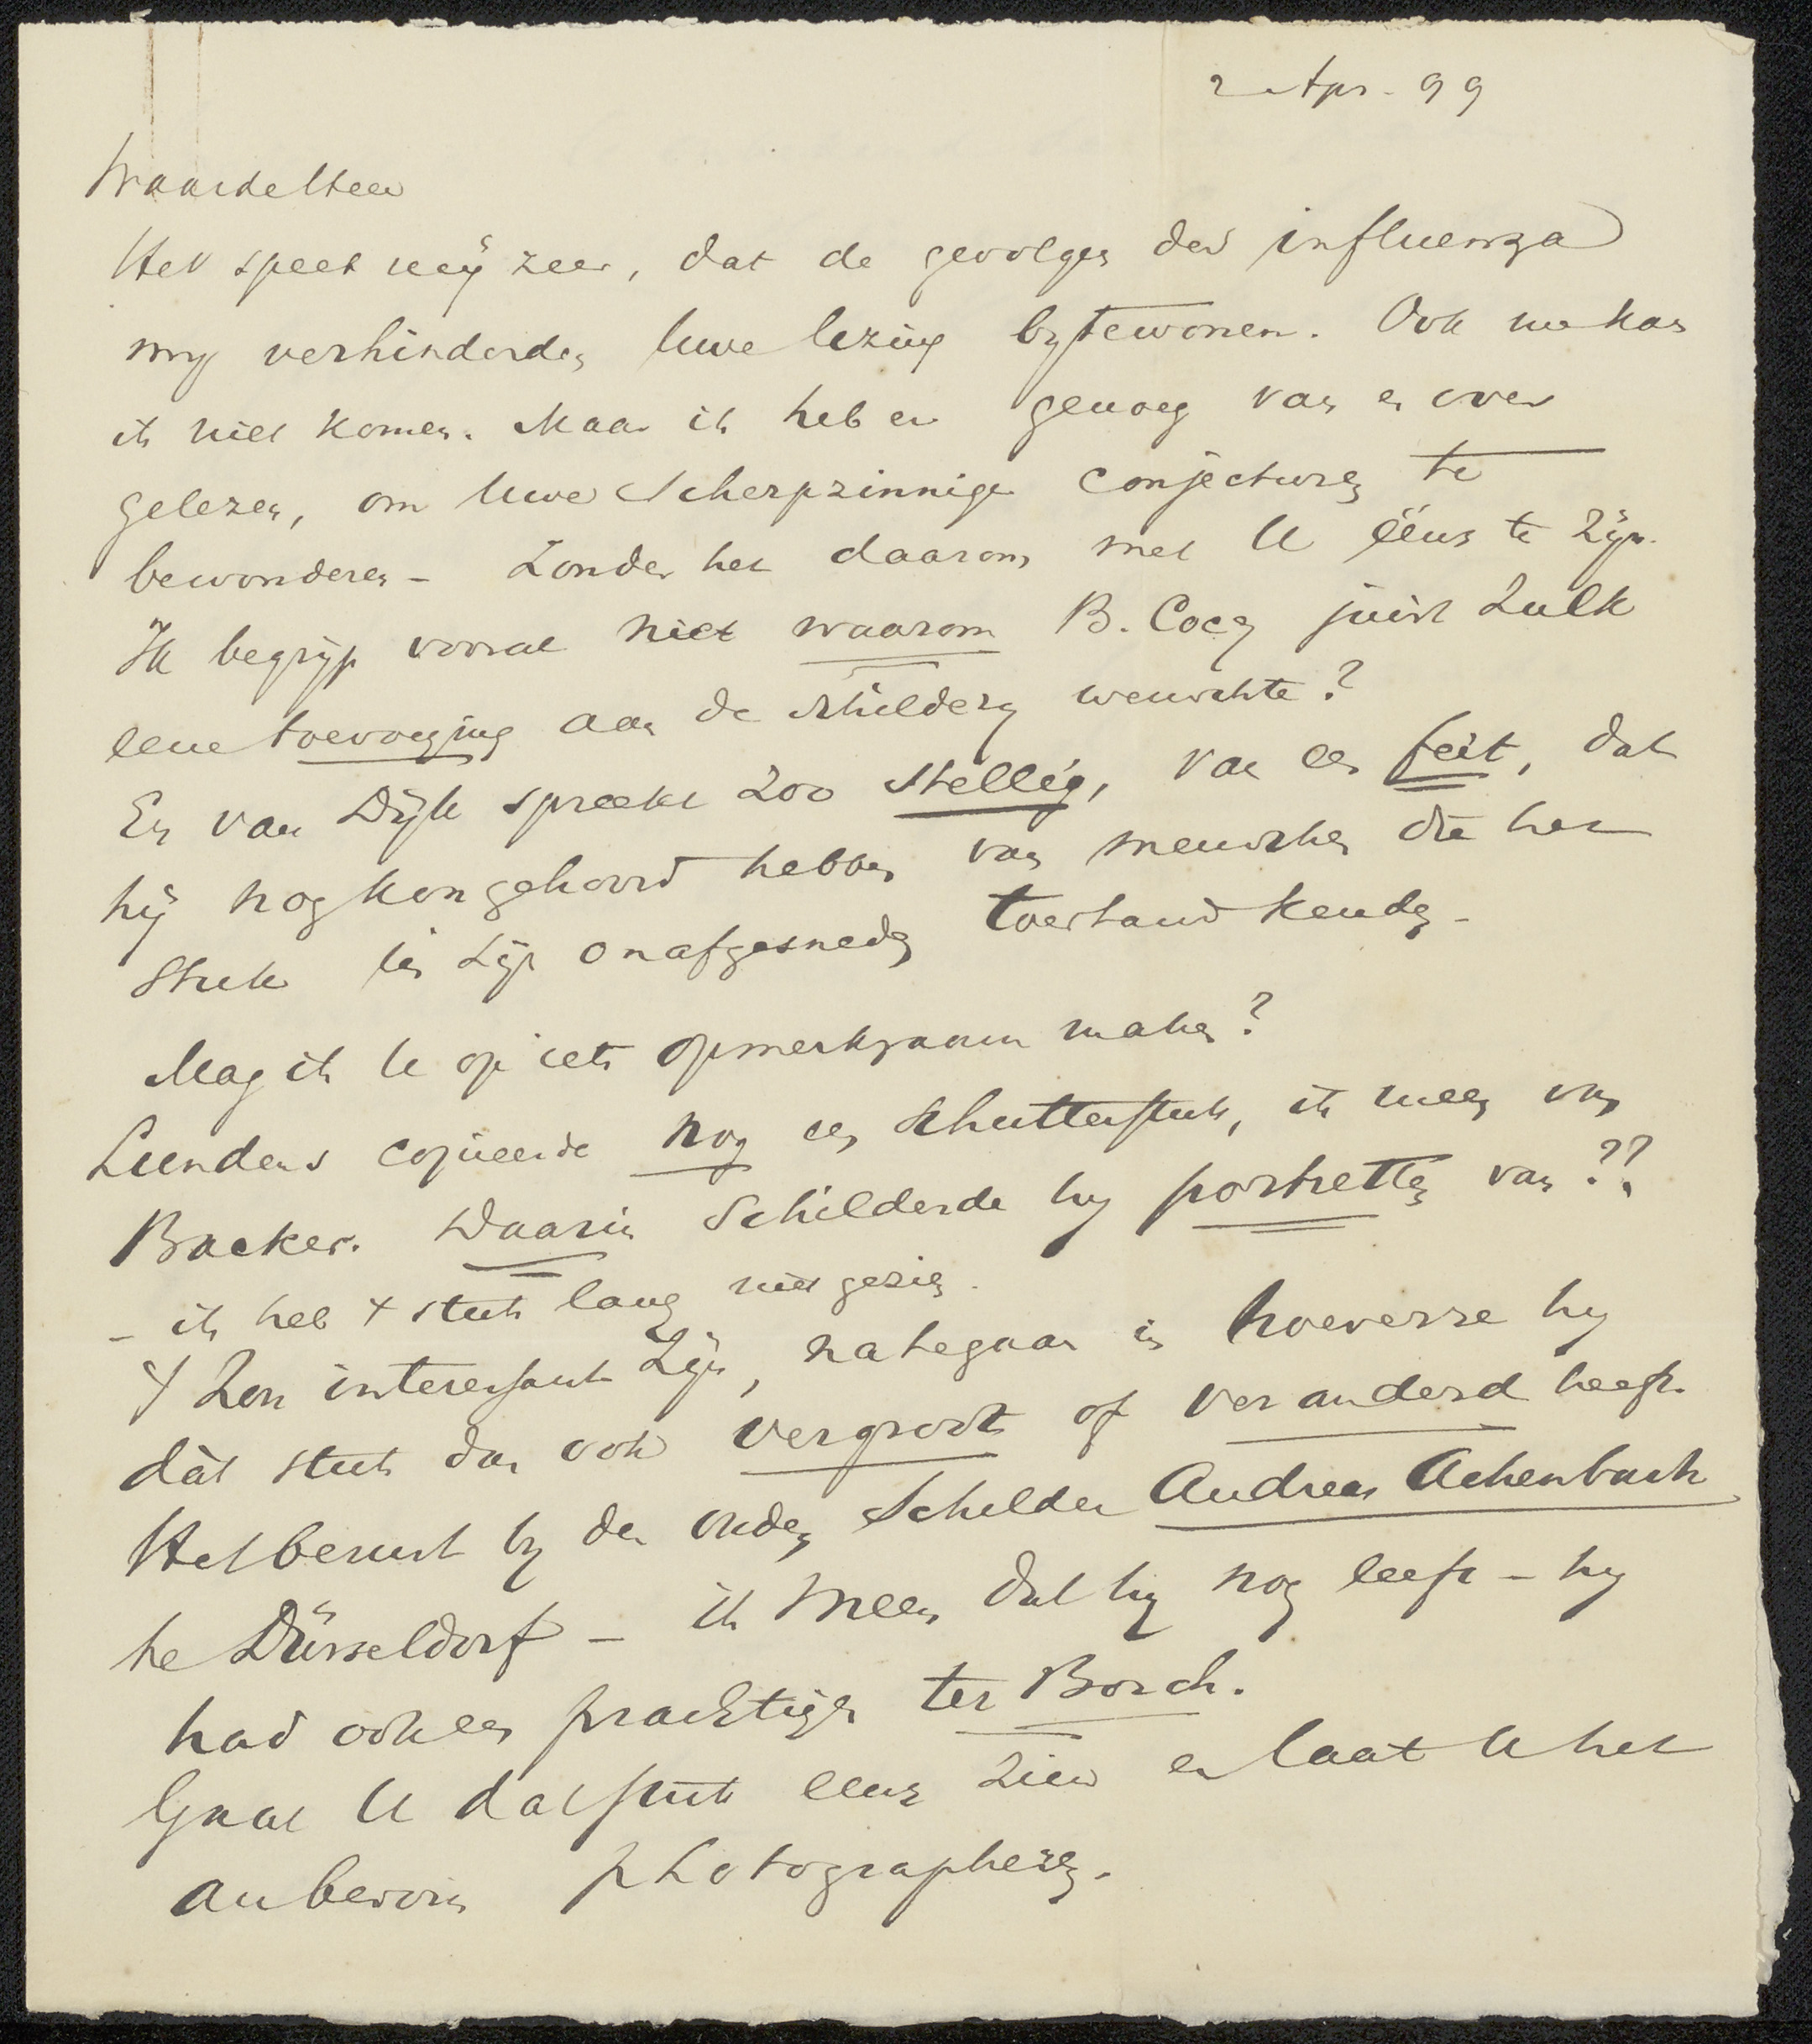 2 Apr. 99
Waarde Heer
Het speet mij zeer, dat de gevolgen der influenza
my verhinderden Uwe lezing bytewonen. Ook nu kan
ik niet komen. Maar ik heb er genoeg van en over
gelezen, om Uwe scherpzinnige conjecturen te
bewonderen - zonder het daarom met U ééns te zijn.
Ik begrijp vooral niet waarom B. Cocq juist zulk
eene toevoeging aan de schildery wenschte?
En van Dijk spreekt zoo stellig, van een feit, dat
hij nog kon gehoord hebben van menschen die het
stuk in zijn onafgesneden toestand kenden -
Mag ik U op iets opmerkzaam maken?
Lundens copieerde nog een schuttersstuk, ik meen van
Backer. Daarin schilderde hy portretten van??
- ik heb 't stuk lang niet gezien.
't Zou interessant zijn, nategaan in hoeverre hy
dàt stuk dan ook vergroot of veranderd heeft.
Het berust by den ouden Schilder Andreas Achenbach
te Düsseldorf - ik meen dat hy nog leeft - hy
had ook een prachtigen ter Borch.
Gaat U dat stuk eens zien en laat U het
photographeren.